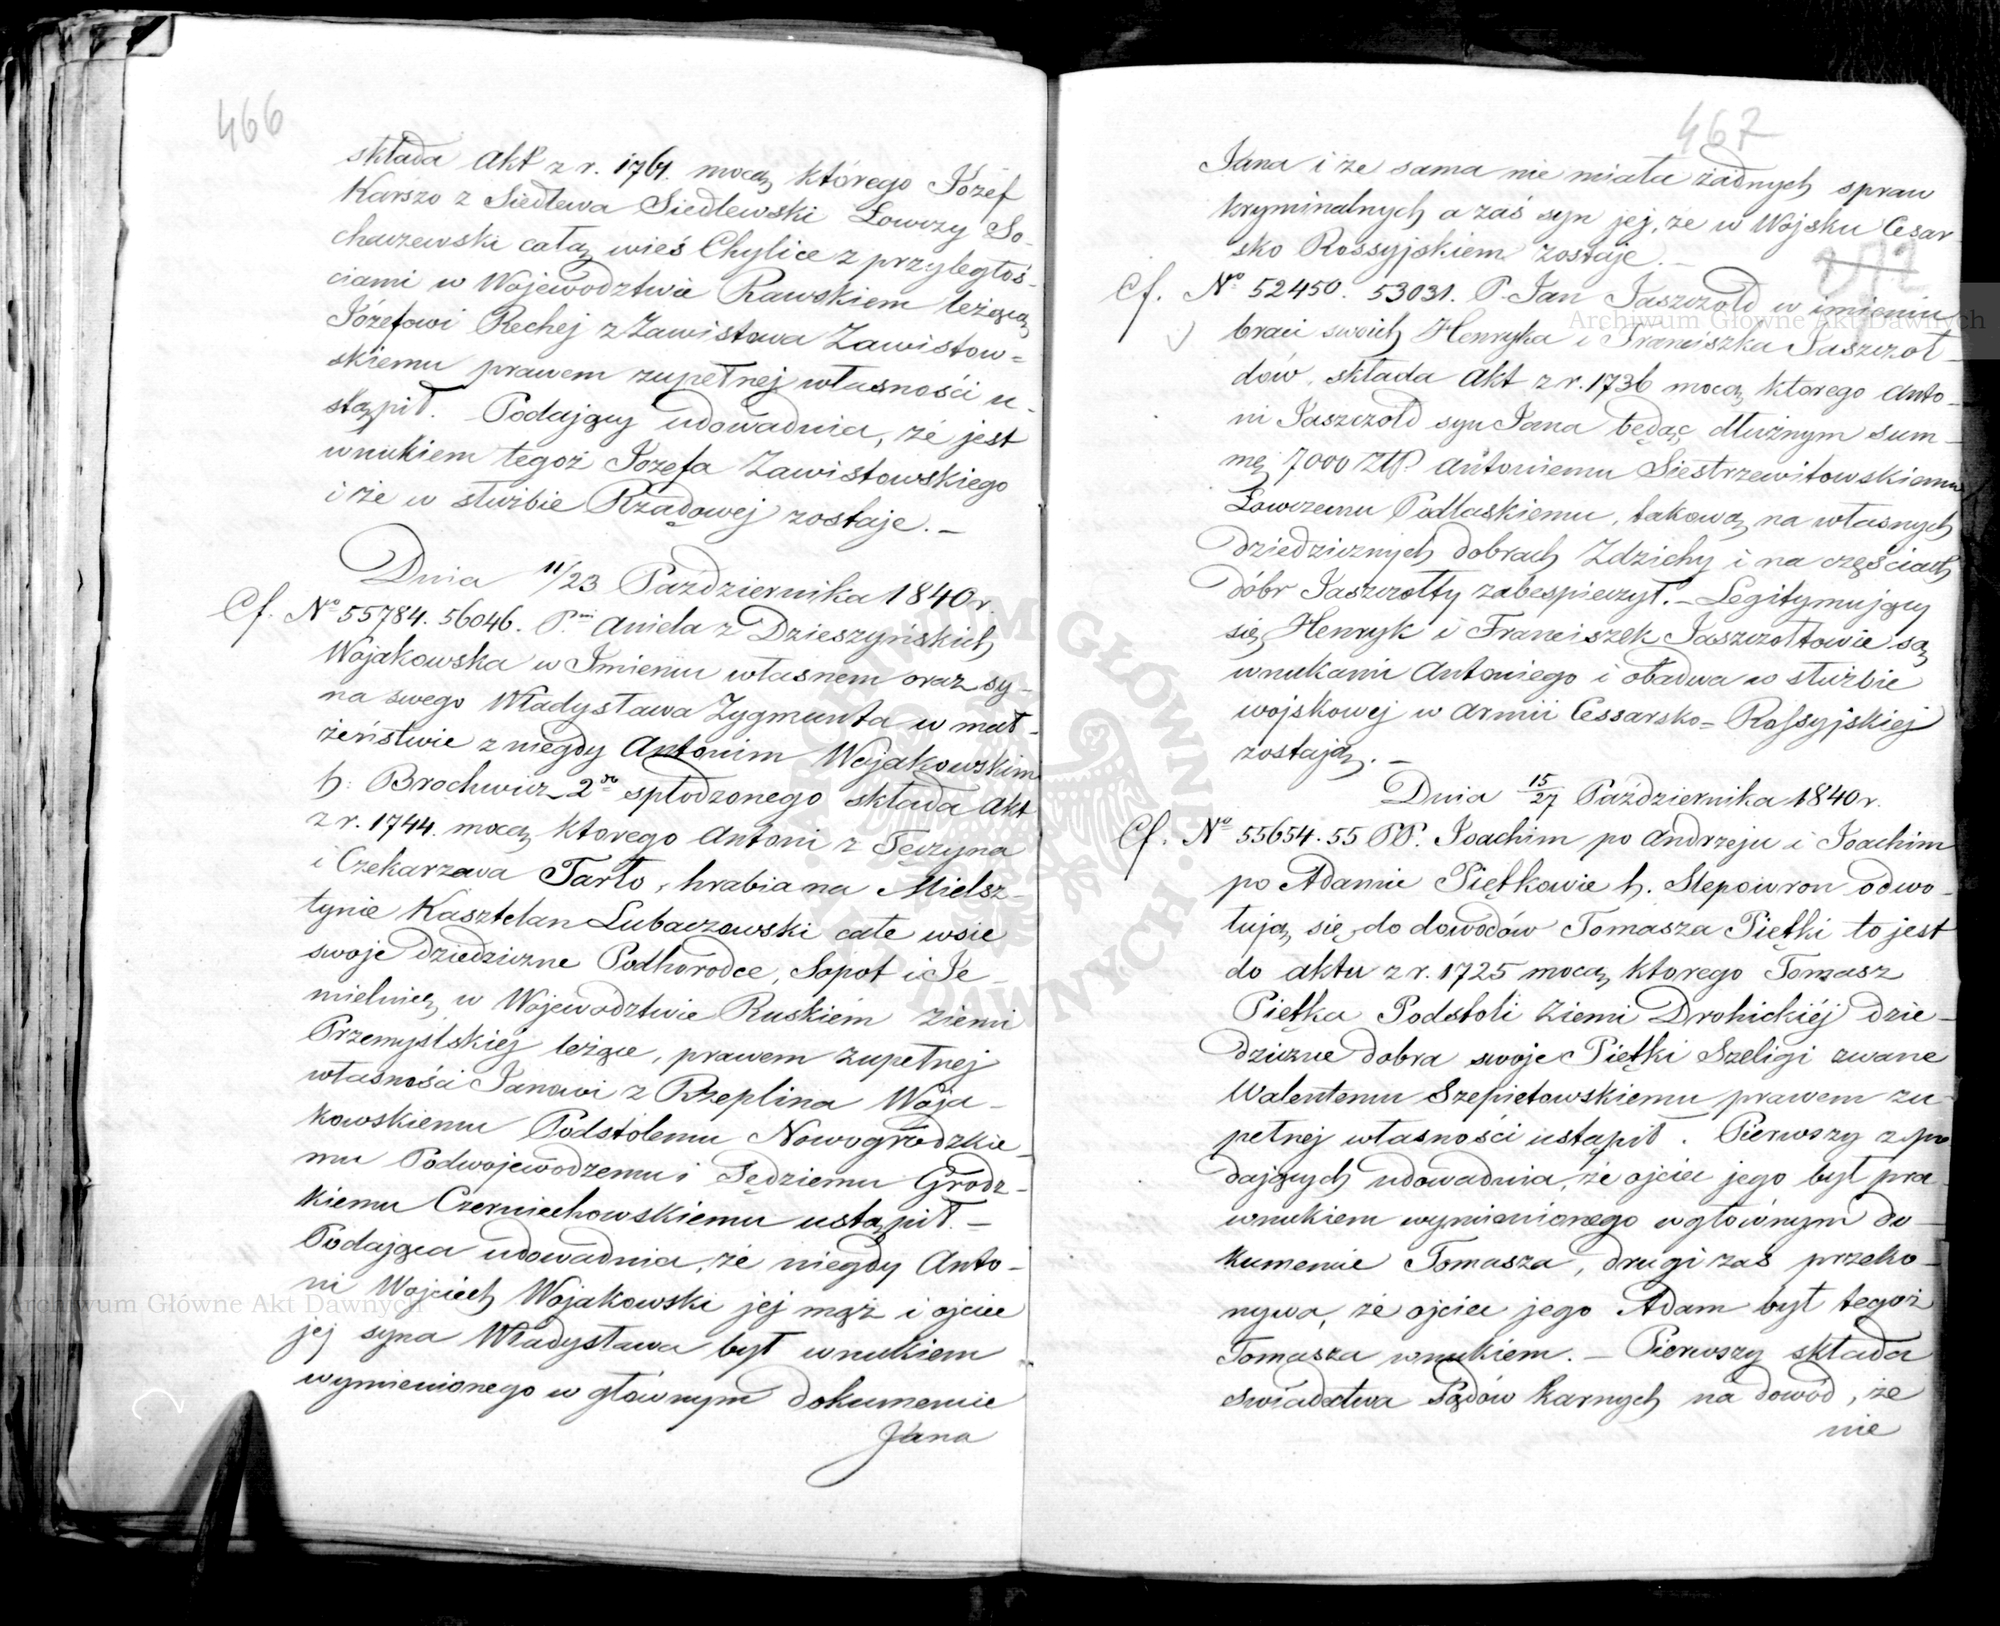 466
składa Akt z r. 1761. mocą którego Józef
Karszo z Siedlewa Siedlewski Łowczy So-
chaczewski całą wieś Chylice z przyległoś-
ciami w Województwie Rawskiem leżącą
Józefowi Rechej z Zawistowa Zawistow-
skiemu prawem zupełnej własności u-
stąpił. Podający udowadnia, że jest
wnukiem tegoż Jozefa Zawistowskiego
i że w służbie Rządowej zostaje. –
Dnia 11/23 Października 1840 r.
Cf. No 55784. 56046. P.ni Aniela z Dzieszyńskich
Wojakowska w Imieniu własnem oraz sy-
na swego Władysława Zygmunta w mał-
żeństwie z niegdy Antonim Wojakowskim
h. Brochwicz 2o spłodzonego składa Akt
z r. 1744. mocą ktorego Antoni z Tęczyna
i Czekarzewa Tarło, hrabia na Mielsz-
tynie Kasztelan Lubaczowski całe wsie
swoje dziedziczne Podhorodce, Sopot i Je-
mielnicą w Województwie Ruskiem ziemi
Przemyślskiej leżące, prawem zupełnej
własności Janowi z Rzeplina Woja-
kowskiemu Podstolemu Nowogrodzkie-
mu Podwojewodzemu i Sędziemu Grodz-
kiemu Czerniechowskiemu ustąpił. –
Podająca udowadnia, że niegdy Anto-
ni Wojciech Wojakowski jej mąż i ojciec
jej syna Władysława był wnukiem
wymienionego w głównym dokumencie
Jana
467
Jana i że sama nie miała żadnych spraw
kryminalnych a zaś syn jej, że w Wojsku Cesar
sko Rossyjskiem zostaje. –
Cf. No 52450. 53031. P. Jan Jaszczołd w imieniu
braci swoich Henryka i Franciszka Jaszczoł-
dów, składa Akt z r. 1736 mocą ktorego Anto-
ni Jaszczołd syn Jana będąc dłużnym sum-
mę 7000 Złp. Antoniemu Siestrzewitowskiemu
Łowczemu Podlaskiemu, takową na własnych
dziedzicznych dobrach Zdzichy i na częściach
dóbr Jaszczołty zabespieczył. – Legitymujący
się Henryk i Franciszek Jaszczołtowie są
wnukami Antoniego i obadwa w służbie
wojskowej w Armii Cessarsko-Rossyjskiej
zostają. –
Dnia 15/27 Października 1840 r.
Cf. No 55654. 55 PP. Joachim po Andrzeju i Joachim
po Adamie Piętkowie h. Slepowron odwo-
łują się do dowodów Tomasza Piętki to jest
do aktu z r. 1725 mocą ktorego Tomasz
Piętka Podstoli Ziemi Drohickiéj dzie-
dziczne dobra swoje Piętki Szeligi zwane
Walentemu Szepietowskiemu prawem zu-
pełnej własności ustąpił. Pierwszy z po
dających udowadnia, że ojciec jego był pra-
wnukiem wymienionego w głównym do-
kumencie Tomasza, drugi zaś przeko-
nywa, że ojciec jego Adam był tegoż
Tomasza wnukiem. – Pierwszy składa
świadectwa Sądów Karnych na dowód, że
nie
Archiwum Główne Akt Dawnych
Archiwum Główne Akt Dawnych
ARCHIWUM GŁÓWNE AKT DAWNYCH